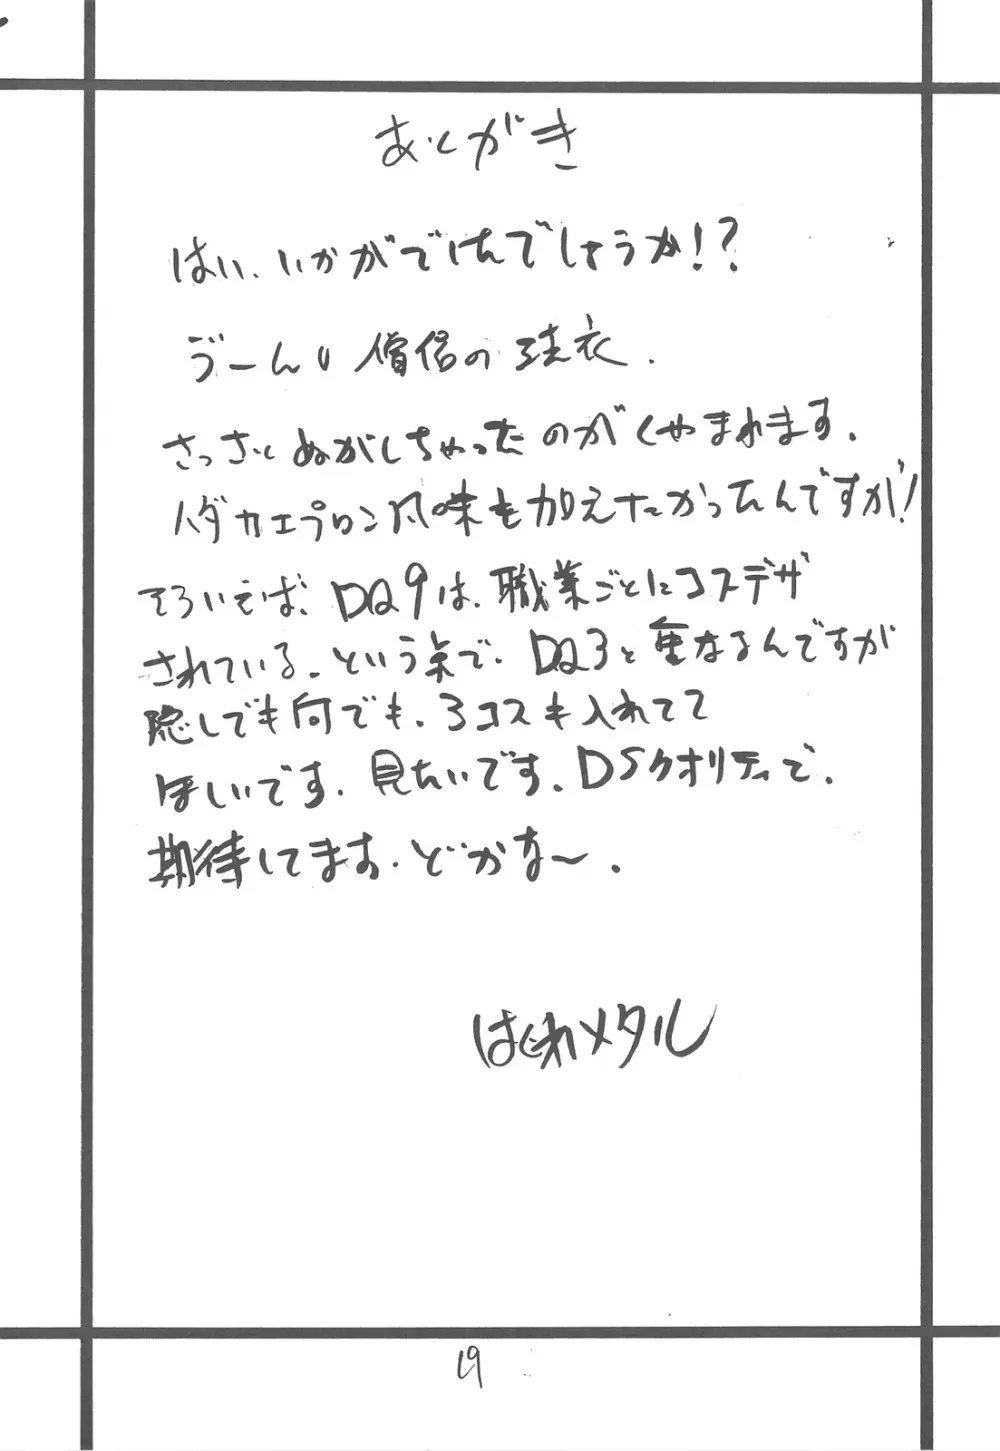 あとがき
はい、いかがでしたでしょうか!?
うーん、僧侶の法衣。
さっさとぬがしちゃったのがくやまれます。
ハダカエプロン風味も加えたかったんですが!
そういえば、DQ9は、職業ごとにコスデザ
されている。という事で、DQ3と重なるんですが
隠しでも何でも、3コスも入れてて
ほしいです。見たいです。DSクオリティで。
期待してます。どかな〜。
はぐれメタル
19